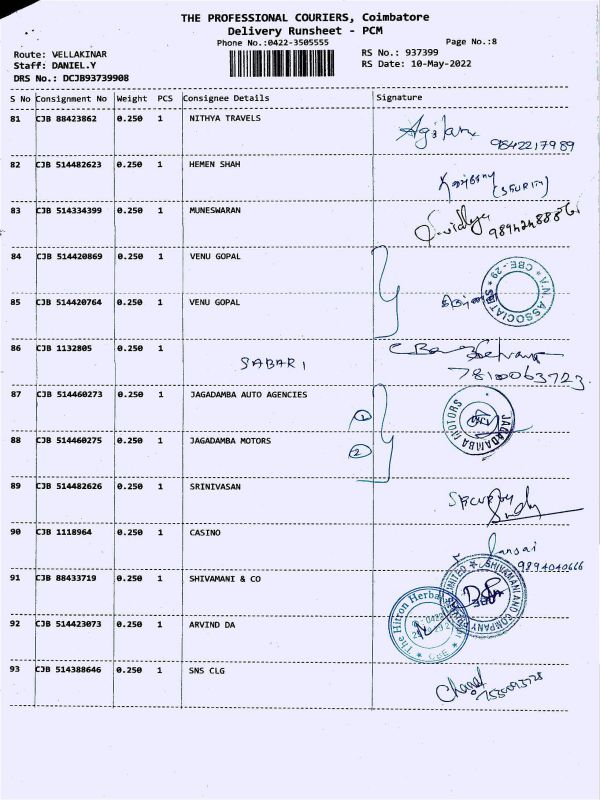 THE PROFESSIONAL COURIERS, Coimbatore
Delivery Runsheet - PCM
Phone No.:0422-3505555
Page No.:8
Route: VELLAKINAR
RS No.: 937399
Staff: DANIEL.Y
RS Date: 10-May-2022
DRS No.: DCJB93739908
S No Consignment No Weight PCS Consignee Details Signature
81 CJB 88423862 0.250 1 NITHYA TRAVELS
Agilan
9842217989
82 CJB 514482623 0.250 1 HEMEN SHAH
83 CJB 514334399 0.250 1 MUNESWARAN
84 CJB 514420869 0.250 1 VENU GOPAL
V.N. ASSOCIATES * CBE-29 *
85 CJB 514420764 0.250 1 VENU GOPAL
86 CJB 1132805 0.250 1
SABARI
7810063723.
87 CJB 514460273 0.250 1 JAGADAMBA AUTO AGENCIES
1
JAGADAMBA MOTORS
88 CJB 514460275 0.250 1 JAGADAMBA MOTORS
2
89 CJB 514482626 0.250 1 SRINIVASAN
90 CJB 1118964 0.250 1 CASINO
9894040666
91 CJB 88433719 0.250 1 SHIVAMANI & CO
SHIVAMANI AND COMPANY
The Hitron Herbal
92 CJB 514423073 0.250 1 ARVIND DA
93 CJB 514388646 0.250 1 SNS CLG